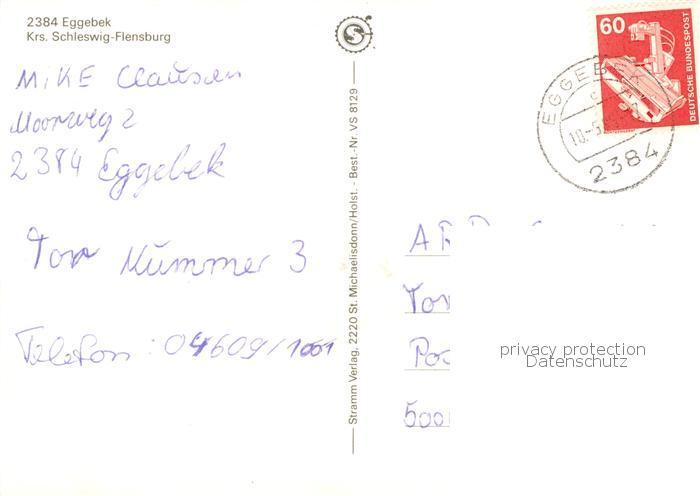 2384 Eggebek
Krs. Schleswig-Flensburg
Mike Clausen
Moorweg 2
2384 Eggebek
Tor Nummer 3
Telefon: 04609/1001
Stramm Verlag, 2220 St. Michaelisdonn/Holst. - Best.-Nr. VS 8129
60
DEUTSCHE BUNDESPOST
EGGEBEK
2384
A
Tor
Po
500
privacy protection
Datenschutz